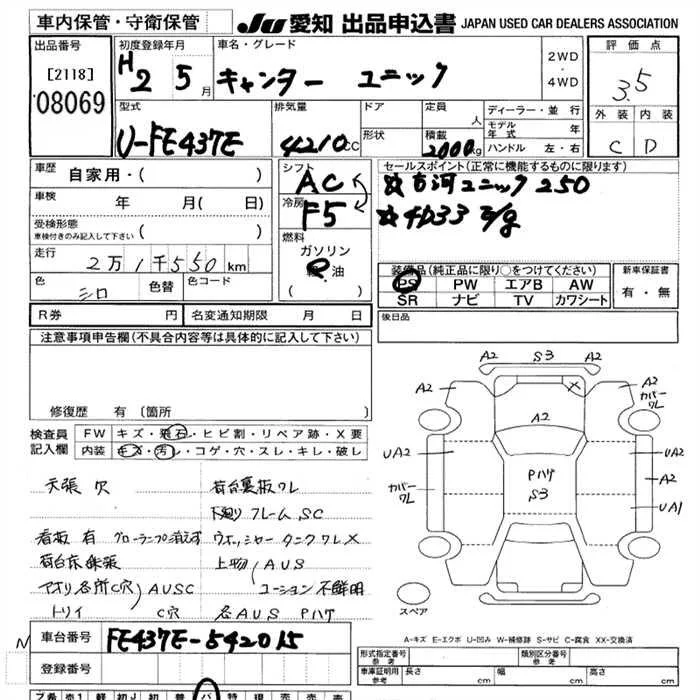 車内保管・守衛保管
JU 愛知 出品申込書 JAPAN USED CAR DEALERS ASSOCIATION
出品番号
[2118]
08069
初度登録年月
H2 5月
車名・グレード
キャンター ユニック
2WD
・
4WD
評価点
3.5
外装 内装
C D
型式
U-FE437E
排気量
4210cc
ドア
形状
定員
人
積載
2000kg
ディーラー・並行
モデル年式 年
ハンドル 左・右
車歴
自家用・( )
車検
年 月( 日)
受検形態
車検付きのみ記入して下さい ( )
走行
2万1千550km
色
シロ
色替
色コード
シフト
AC
冷房
F5
燃料
ガソリン
軽油
( )
セールスポイント(正常に機能するものに限ります)
☆古河ユニック 250
☆4D33 E/g
装備品(純正品に限り○をつけてください)
PS PW エアB AW
SR ナビ TV カワシート
新車保証書
有・無
R券 円
名変通知期限 月 日
後日品
注意事項申告欄(不具合内容等は具体的に記入して下さい)
修復歴 有 〔箇所 〕
検査員記入欄
FW キズ・飛石・ヒビ割・リペア跡・X要
内装 キズ・汚レ・コゲ・穴・スレ・キレ・破レ
天張 穴
荷台裏板ワレ
下廻り フレーム SC
看板 有 グローランプ消えず ウオッシャータンクワレX
荷台床鉄張
上物 AUS
アオリ各所C穴 AUSC
コーション不鮮明
トリイ C穴
各AUS Pハゲ
A2 S3 A2
A2
A2
カバーワレ
A2
UA2
UA2
カバーワレ
A2
PハゲS3
UA1
スペア
A-キズ E-エクボ U-凹み W-補修跡 S-サビ C-腐食 XX-交換済
N
車台番号
FE437E-542015
登録番号
形式指定番号
参考
類別区分番号
参考
車庫証明用
参考
長さ cm
幅 cm
高さ cm